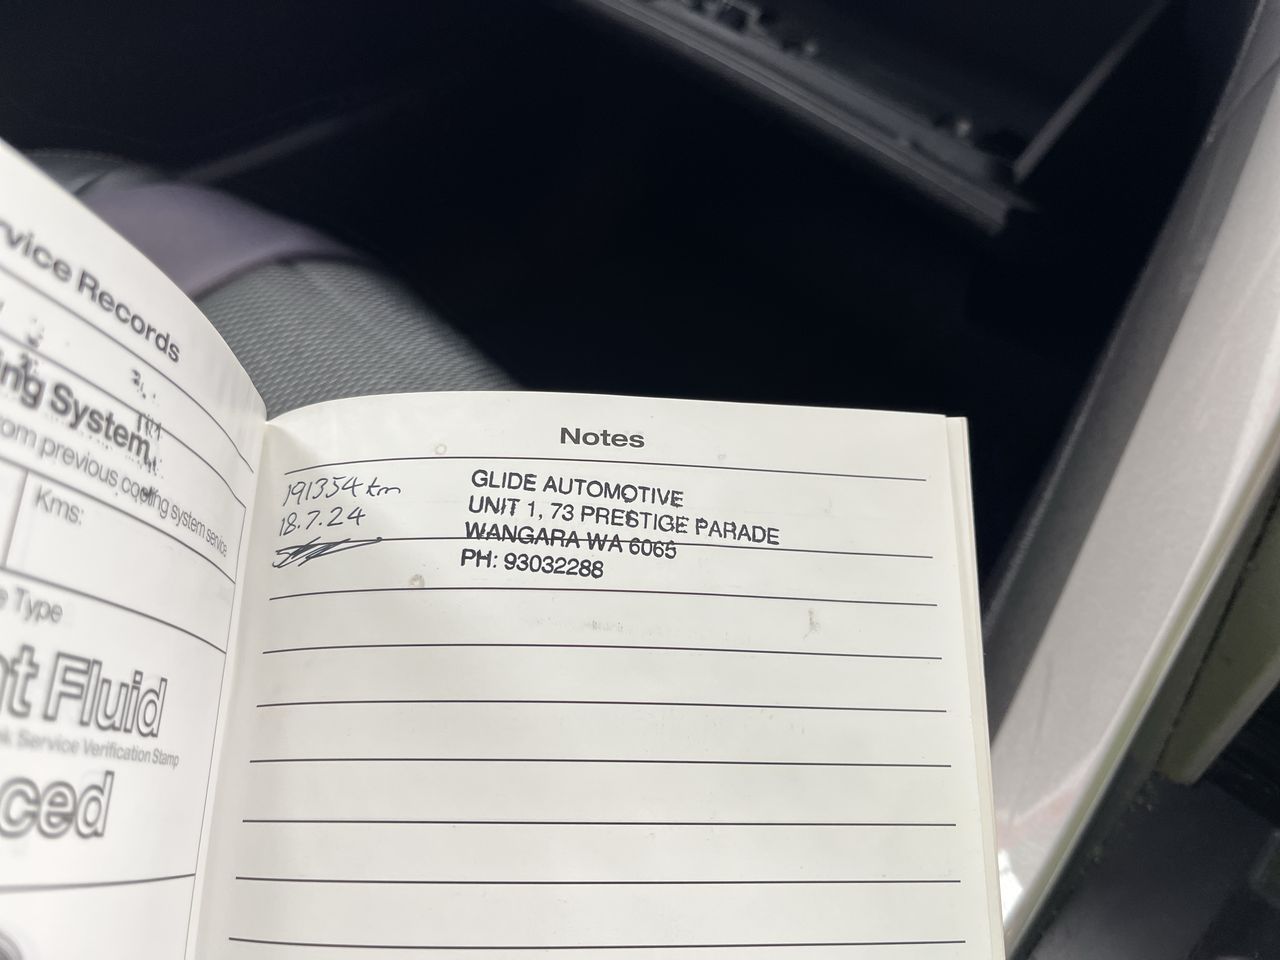 rvice Records
ing System
om previous cooling system service
Kms:
e Type
nt Fluid
k Service Verification Stamp
ced
Notes
191354 km
18.7.24
GLIDE AUTOMOTIVE
UNIT 1, 73 PRESTIGE PARADE
WANGARA WA 6065
PH: 93032288